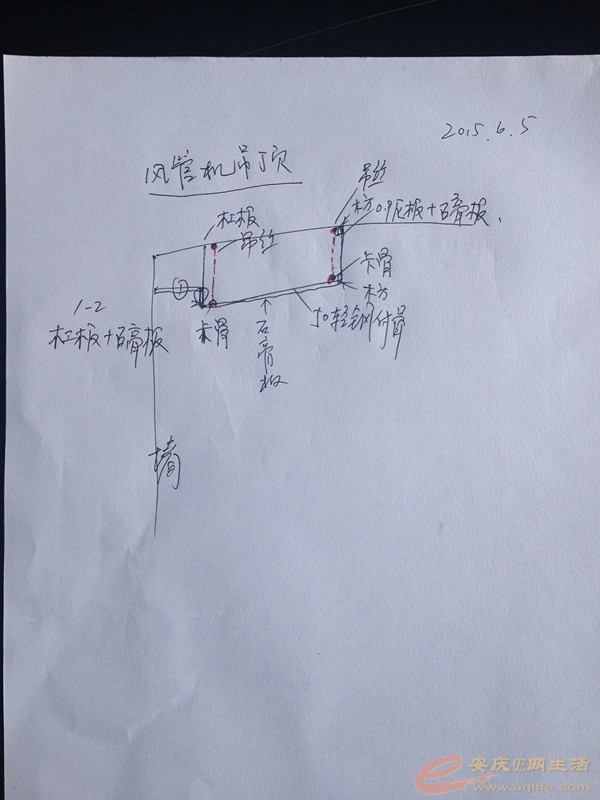 2015.6.5
风管机吊丁页
吊丝
木工板
木方 0.9厘板+石膏板.
吊丝
卡骨
木方
1
1-2
木工板+石膏板
卡骨
石膏板
50轻钢付骨
墙
安庆E网生活
www.aqlife.com